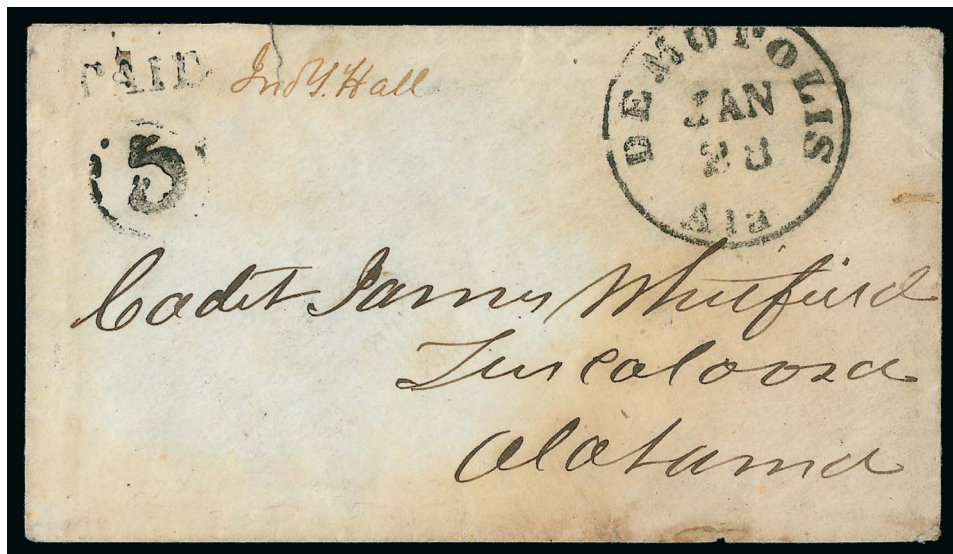 PAID
Jno Y. Hall
5
DEMOPOLIS
JAN
28
Ala
Cadet James Whitfield
Tuscaloosa
Alabama